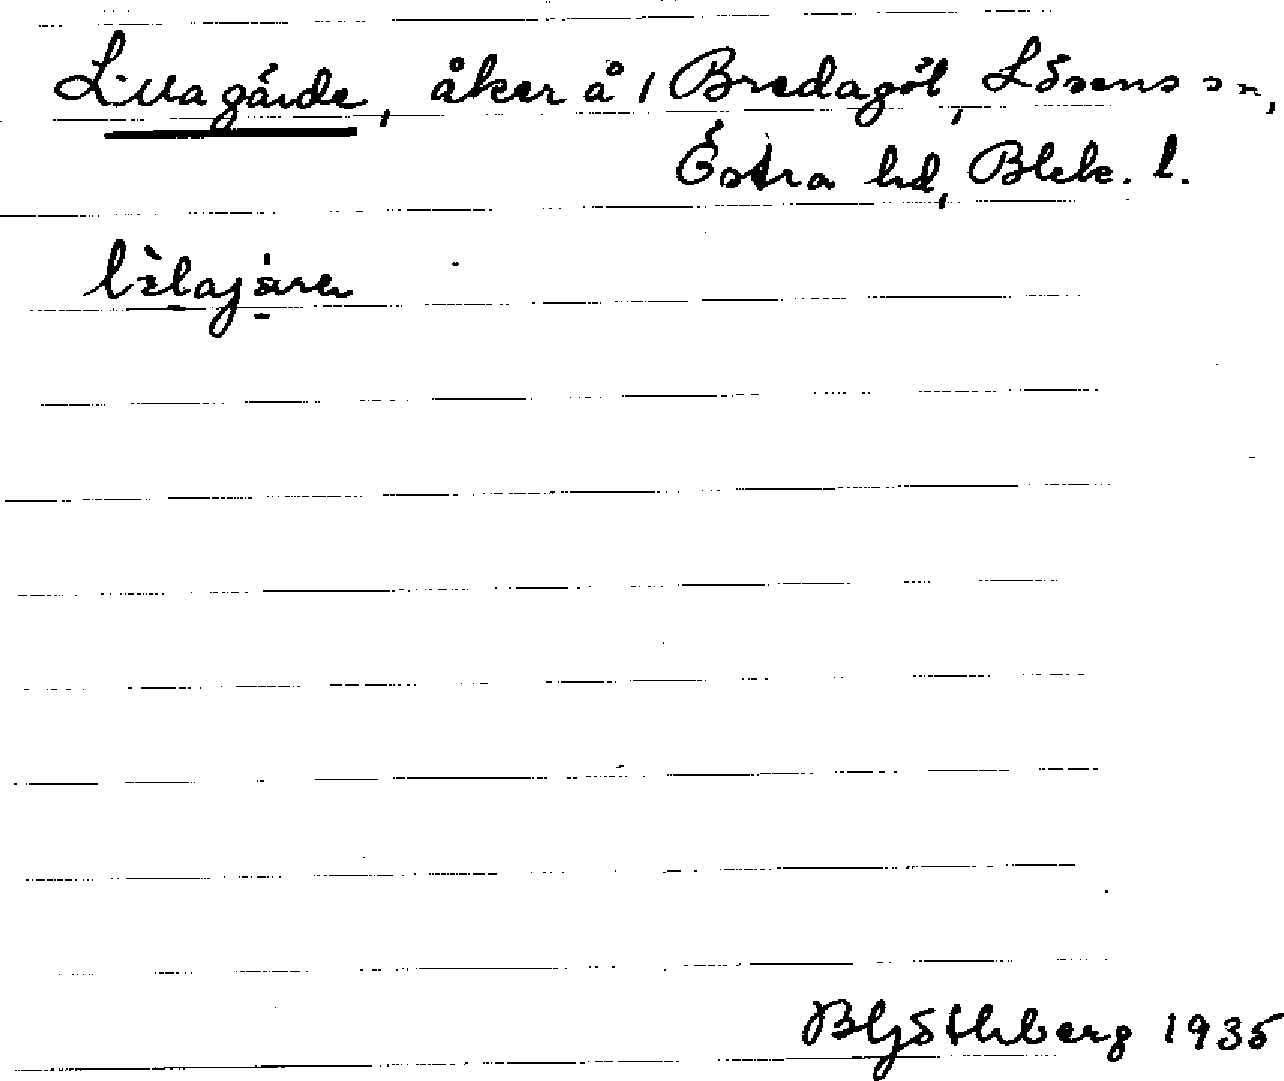 Lillagärde, åker å 1 Bredagöl, Lösens sn,
Östra hd, Blek. l.
lèlajära
B Ljöthberg 1935